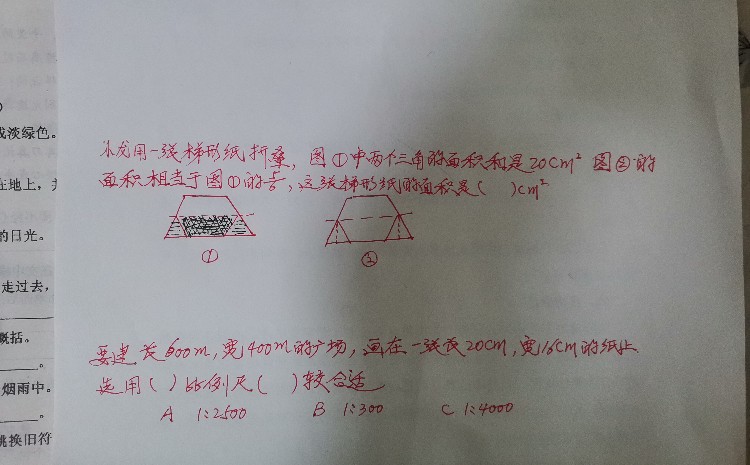 戈淡绿色。
在地上，并
的日光。
走过去，
概括。
烟雨中。
桃换旧符
小龙用一张梯形纸折叠，图①中两个三角的面积和是20cm² 图②的
面积相当于图①的，这张梯形纸的面积是( )cm²
① ②
要建长600m，宽400m的广场，画在一张长20cm，宽16cm的纸上
选用( )比例尺( )较合适
A 1:2500 B 1:300 C 1:4000